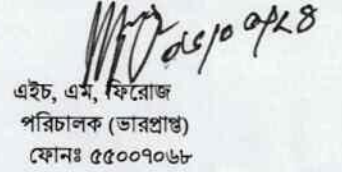 এইচ, এম, ফিরোজ
পরিচালক (ভারপ্রাপ্ত)
ফোনঃ ৫৫০০৭০৬৮